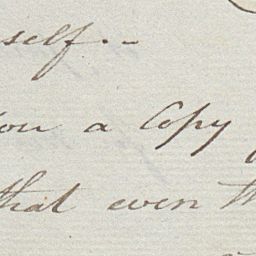 self.--
you a Copy
that even th